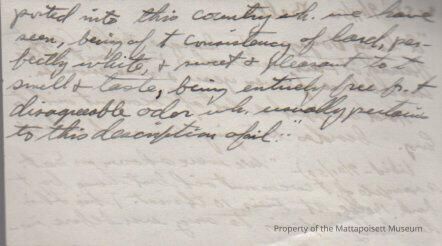 ported into this country wh. we have
seen, being of t consistency of lard, per-
fectly white, & sweet & pleasant to t
smell & taste, being entirely free fr. t
disagreeable odor wh. usually pertains
to this description of oil."
Property of the Mattapoisett Museum